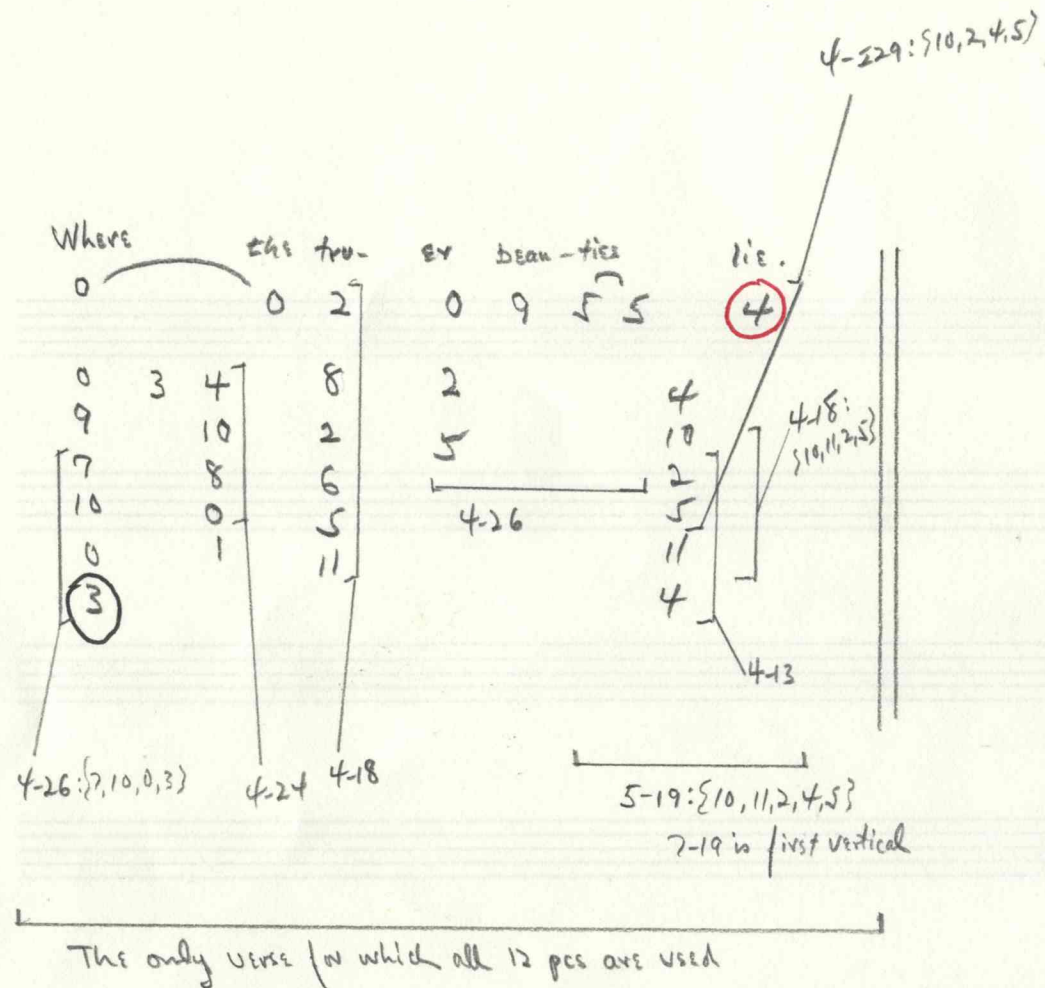 4-Z29:{10,2,4,5}
Where the tru- er beau-ties lie.
0 0 2 0 9 5 5 4
0 3 4 8 2 4
9 10 2 5 10
7 8 6 2
10 0 5 5
0 1 11 11
3 4
4-18:
{10,11,2,5}
4-26
4-13
4-26:{7,10,0,3} 4-24 4-18
5-19:{10,11,2,4,5}
7-19 is first vertical
The only verse for which all 12 pcs are used